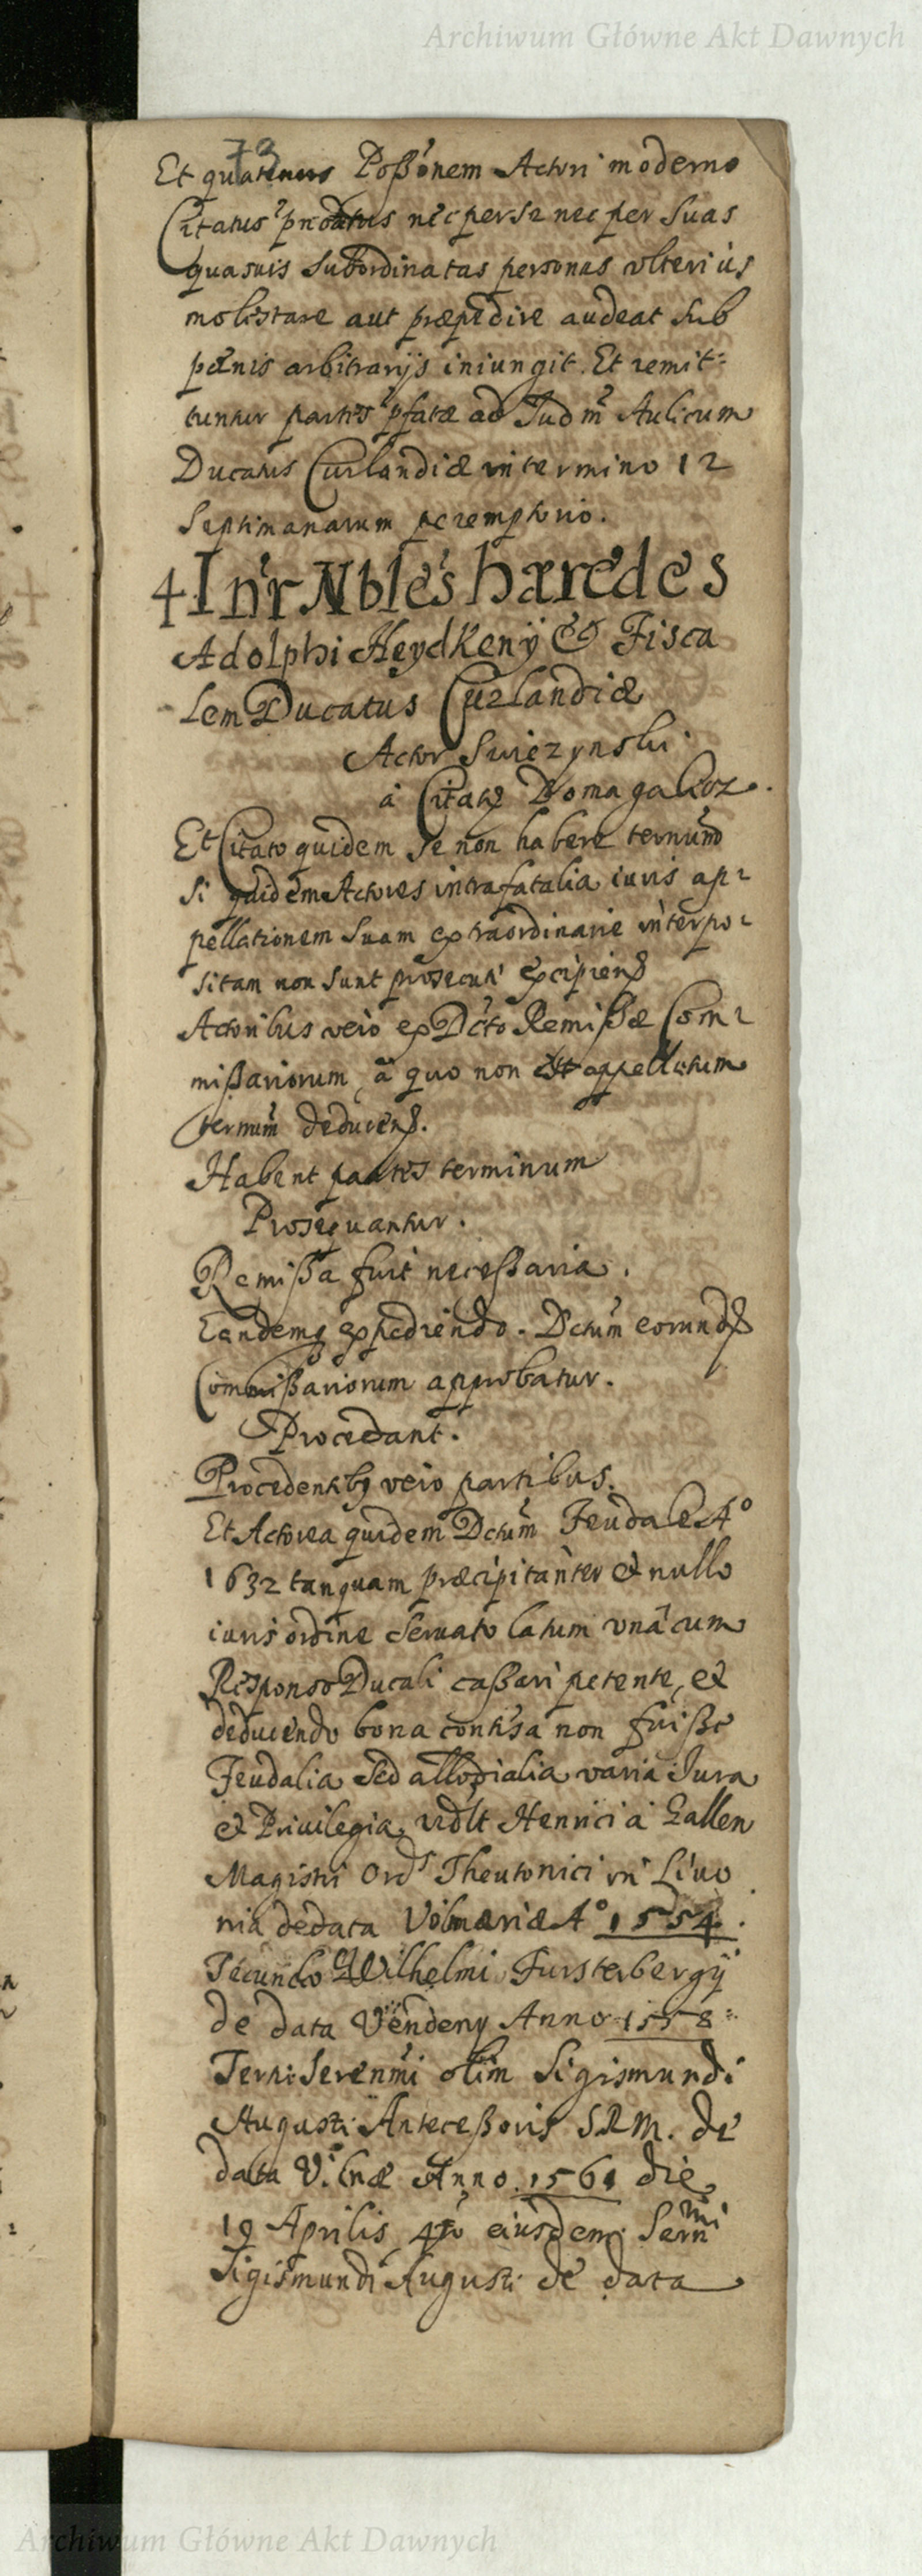 Archiwum Główne Akt Dawnych
73
Et quatenus Poßonem Actori moderno
Citatus nec per se nec per suas
quasuis subordinatas personas vlterius
molestare aut præpedire audeat sub
pænis arbitrarijs iniungit. Et remit:
tuntur partes pfatæ ad Judm Aulicum
Ducatus Curlandiæ in termino 12
Septimanarum peremptorio.
4 Intr Nbles hæredes
Adolphi Heydkenÿ & Fisca
lem Ducatus Curlandiæ
Actor Swiezynski
à Citatq Domagalicz.
Et Citato quidem se non habere ternum
Si quidem Actores intra fatalia iuris ap:
pellationem suam extraordinarie interpo:
sitam non sunt prosecuti excipien
Actoribus vero ex Dcto Remißæ Com:
mißariorum, à quo non est appellatum
termm deducen.
Habent partes terminum
Prosequantur.
Remißa fuit necessaria.
Eandemq expediendo. Dctum eorund
Commißariorum approbatur.
Procedant.
Procedentibq vero partibus.
Et Actorea quidem Dctum Feudale Aº
1632 tanquam præcipitanter & nullo
iuris ordine seruato latum vnà cum
Responso Ducali caßari petente, et
deducendo bona contsa non fuiße
Feudalia sed allodialia varia Jura
et Priuilegia, vidlt Henrici à Gallen
Magistri Ords Theutonici in Liuo
nia de data Volmariæ Aº 1554.
Secundo Wilhelmi Furstebergÿ
de data Vendeny Anno 1558
Tertii Serenmi olim Sigismundi
Augusti Anteceßoris SRM. de
data Vilnæ Anno 1561 die
19 Aprilis, 4to eiusdem Sermi
Sigismundi Augusti de data
Archiwum Główne Akt Dawnych